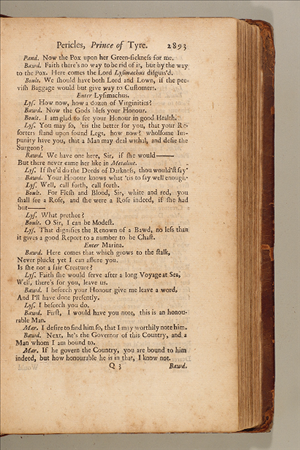 Pericles, Prince of Tyre. 2893
Pand. Now the Pox upon her Green-sickness for me.
Bawd. Faith there's no way to be rid of it, but by the way
to the Pox. Here comes the Lord Lysimachus disguis'd.
Boult. We should have both Lord and Lown, if the pee-
vish Baggage would but give way to Customers.
Enter Lysimachus.
Lys. How now, how a dozen of Virginities?
Bawd. Now the Gods bless your Honour.
Boult. I am glad to see your Honour in good Health.
Lys. You may so, 'tis the better for you, that your Re-
sorters stand upon sound Legs, how now? wholsome Im-
punity have you, that a Man may deal withal, and defie the
Surgeon?
Bawd. We have one here, Sir, if she would——
But there never came her like in Metaline.
Lys. If she'd do the Deeds of Darkness, thou wouldst say?
Bawd. Your Honour knows what 'tis to say well enough.
Lys. Well, call forth, call forth.
Boult. For Flesh and Blood, Sir, white and red, you
shall see a Rose, and she were a Rose indeed, if she had
but——
Lys. What prethee?
Boult. O Sir, I can be Modest.
Lys. That dignifies the Renown of a Bawd, no less than
it gives a good Report to a number to be Chast.
Enter Marina.
Bawd. Here comes that which grows to the stalk,
Never pluckt yet I can assure you.
Is she not a fair Creature?
Lys. Faith she would serve after a long Voyage at Sea,
Well, there's for you, leave us.
Bawd. I beseech your Honour give me leave a word,
And I'll have done presently.
Lys. I beseech you do.
Bawd. First, I would have you note, this is an honou-
rable Man.
Mar. I desire to find him so, that I may worthily note him.
Bawd. Next, he's the Governor of this Country, and a
Man whom I am bound to.
Mar. If he govern the Country, you are bound to him
indeed, but how honourable he is in that, I know not.
Q 3 Bawd.